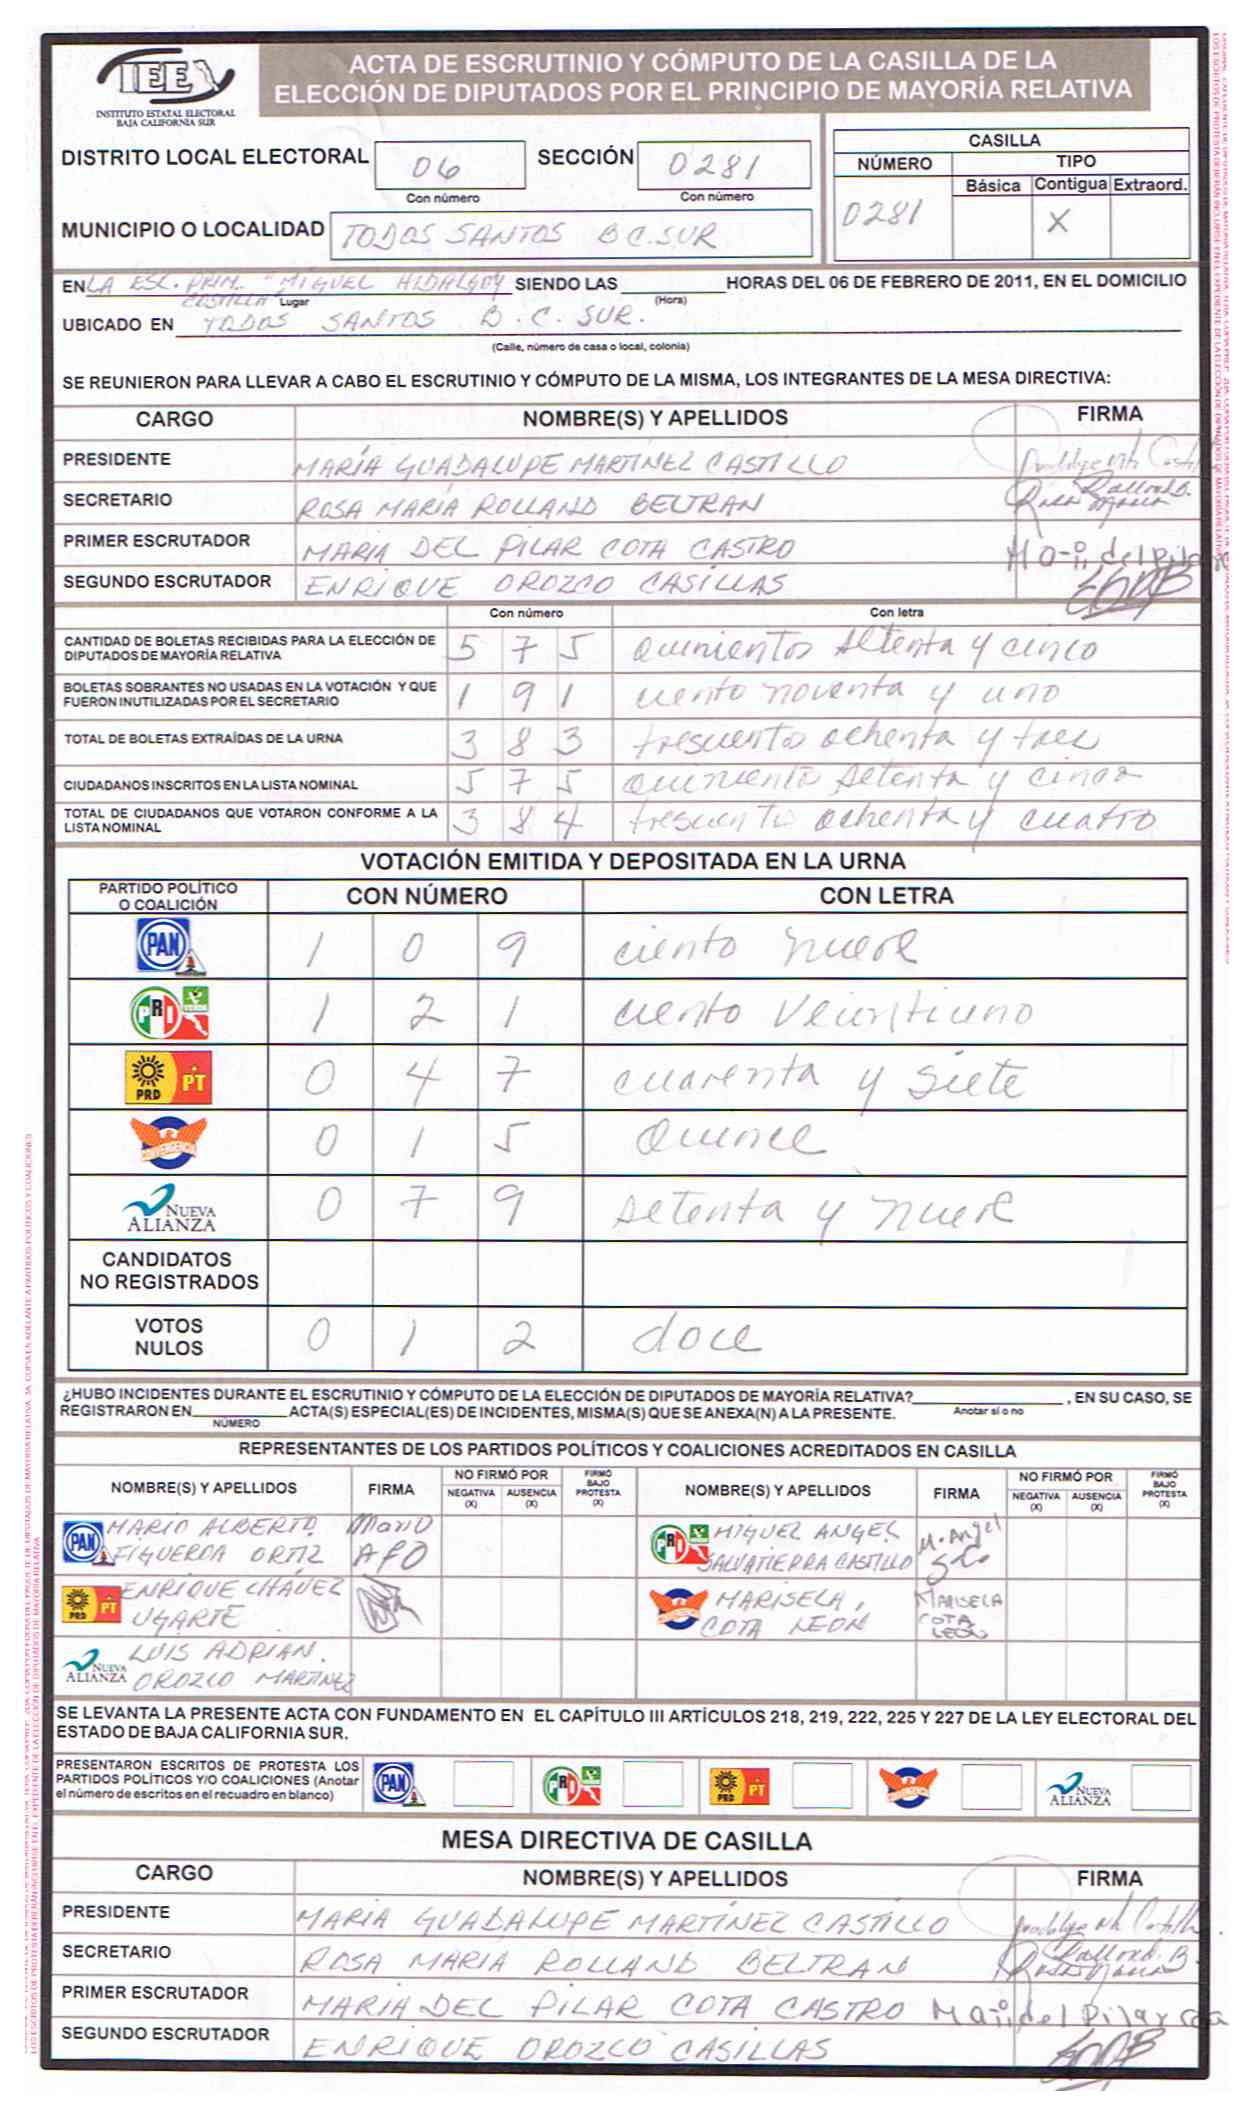 IEE
INSTITUTO ESTATAL ELECTORAL
BAJA CALIFORNIA SUR
ACTA DE ESCRUTINIO Y CÓMPUTO DE LA CASILLA DE LA
ELECCIÓN DE DIPUTADOS POR EL PRINCIPIO DE MAYORÍA RELATIVA
DISTRITO LOCAL ELECTORAL 06 SECCIÓN 0281
Con número Con número
MUNICIPIO O LOCALIDAD TODOS SANTOS B C.SUR
CASILLA
NÚMERO TIPO
Básica Contigua Extraord.
0281 X
EN LA ESC. PRIM. "MIGUEL HIDALGO Y SIENDO LAS HORAS DEL 06 DE FEBRERO DE 2011, EN EL DOMICILIO
COSTILLA" Lugar (Hora)
UBICADO EN TODOS SANTOS B.C. SUR.
(Calle, número de casa o local, colonia)
SE REUNIERON PARA LLEVAR A CABO EL ESCRUTINIO Y CÓMPUTO DE LA MISMA, LOS INTEGRANTES DE LA MESA DIRECTIVA:
CARGO NOMBRE(S) Y APELLIDOS FIRMA
PRESIDENTE MARÍA GUADALUPE MARTINEZ CASTILLO
SECRETARIO ROSA MARÍA ROLLAND BELTRAN
PRIMER ESCRUTADOR MARIA DEL PILAR COTA CASTRO Ma. del Pilar
SEGUNDO ESCRUTADOR ENRIQUE OROZCO CASILLAS
Con número Con letra
CANTIDAD DE BOLETAS RECIBIDAS PARA LA ELECCIÓN DE
DIPUTADOS DE MAYORÍA RELATIVA 5 7 5 quinientos setenta y cinco
BOLETAS SOBRANTES NO USADAS EN LA VOTACIÓN Y QUE
FUERON INUTILIZADAS POR EL SECRETARIO 1 9 1 ciento noventa y uno
TOTAL DE BOLETAS EXTRAÍDAS DE LA URNA 3 8 3 trescuento ochenta y tres
CIUDADANOS INSCRITOS EN LA LISTA NOMINAL 5 7 5 quiniento setenta y cinco
TOTAL DE CIUDADANOS QUE VOTARON CONFORME A LA
LISTA NOMINAL 3 8 4 trescuento ochenta y cuatro
VOTACIÓN EMITIDA Y DEPOSITADA EN LA URNA
PARTIDO POLÍTICO
O COALICIÓN CON NÚMERO CON LETRA
PAN 1 0 9 ciento nueve
PRI VERDE 1 2 1 ciento veintiuno
PRD PT 0 4 7 cuarenta y siete
CONVERGENCIA 0 1 5 quince
NUEVA
ALIANZA 0 7 9 setenta y nueve
CANDIDATOS
NO REGISTRADOS
VOTOS
NULOS 0 1 2 doce
¿HUBO INCIDENTES DURANTE EL ESCRUTINIO Y CÓMPUTO DE LA ELECCIÓN DE DIPUTADOS DE MAYORÍA RELATIVA? , EN SU CASO, SE
REGISTRARON EN ACTA(S) ESPECIAL(ES) DE INCIDENTES, MISMA(S) QUE SE ANEXA(N) A LA PRESENTE. Anotar sí o no
NÚMERO
REPRESENTANTES DE LOS PARTIDOS POLÍTICOS Y COALICIONES ACREDITADOS EN CASILLA
NOMBRE(S) Y APELLIDOS FIRMA NO FIRMÓ POR NEGATIVA (X) AUSENCIA (X) FIRMÓ BAJO PROTESTA (X) NOMBRE(S) Y APELLIDOS FIRMA NO FIRMÓ POR NEGATIVA (X) AUSENCIA (X) FIRMÓ BAJO PROTESTA (X)
PAN MARIO ALBERTO FIGUEROA ORTIZ Mario AFO
PRI MIGUEL ANGEL SALVATIERRA CASTILLO M. Angel
PRD PT ENRIQUE CHÁVEZ UGARTE
MARISELA, COTA LEON MARISELA COTA LEON
NUEVA ALIANZA LUIS ADRIAN. OROZCO MARTINEZ
SE LEVANTA LA PRESENTE ACTA CON FUNDAMENTO EN EL CAPÍTULO III ARTÍCULOS 218, 219, 222, 225 Y 227 DE LA LEY ELECTORAL DEL
ESTADO DE BAJA CALIFORNIA SUR.
PRESENTARON ESCRITOS DE PROTESTA LOS
PARTIDOS POLÍTICOS Y/O COALICIONES (Anotar
el número de escritos en el recuadro en blanco)
PAN PRI PRD PT NUEVA ALIANZA
MESA DIRECTIVA DE CASILLA
CARGO NOMBRE(S) Y APELLIDOS FIRMA
PRESIDENTE MARIA GUADALUPE MARTÍNEZ CASTILLO
SECRETARIO ROSA MARIA ROLLAND BELTRAN
PRIMER ESCRUTADOR MARIA DEL PILAR COTA CASTRO Ma. del Pilar
SEGUNDO ESCRUTADOR ENRIQUE OROZCO CASILLAS